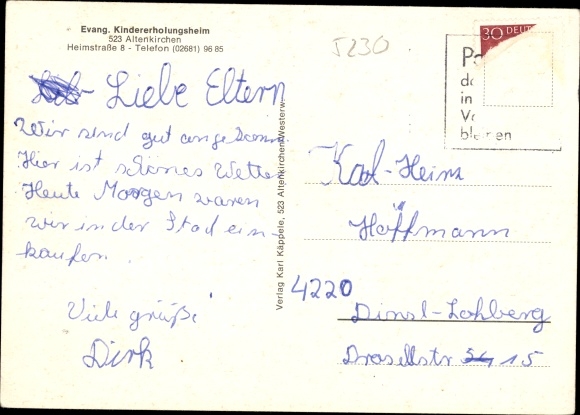 Evang. Kindererholungsheim
523 Altenkirchen
Heimstraße 8 - Telefon (02681) 96 85
5230
30 DEUT
Liebe Eltern
Wir sind gut angekomm
Hier ist schönes Wetter
Heute Morgen waren
wir in der Stad ein-
kaufen.
Viele grüße
Dirk
Verlag Karl Käppele, 523 Altenkirchen/Westerw.
Karl-Heinz
Höffmann
4220
Dinsl-Lohberg
15